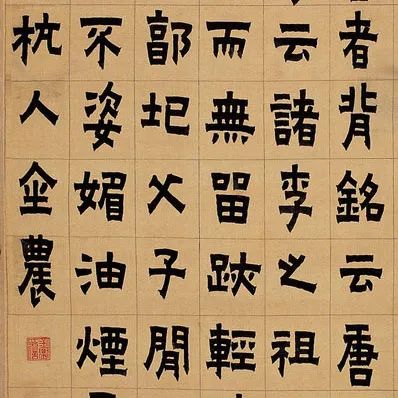 者背銘云唐
云諸李之祖
而無留跡輕
郭圮父子閒
不姿媚油煙
杭人金農